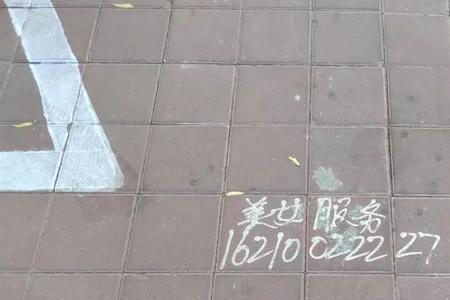 美女服务
16210022227